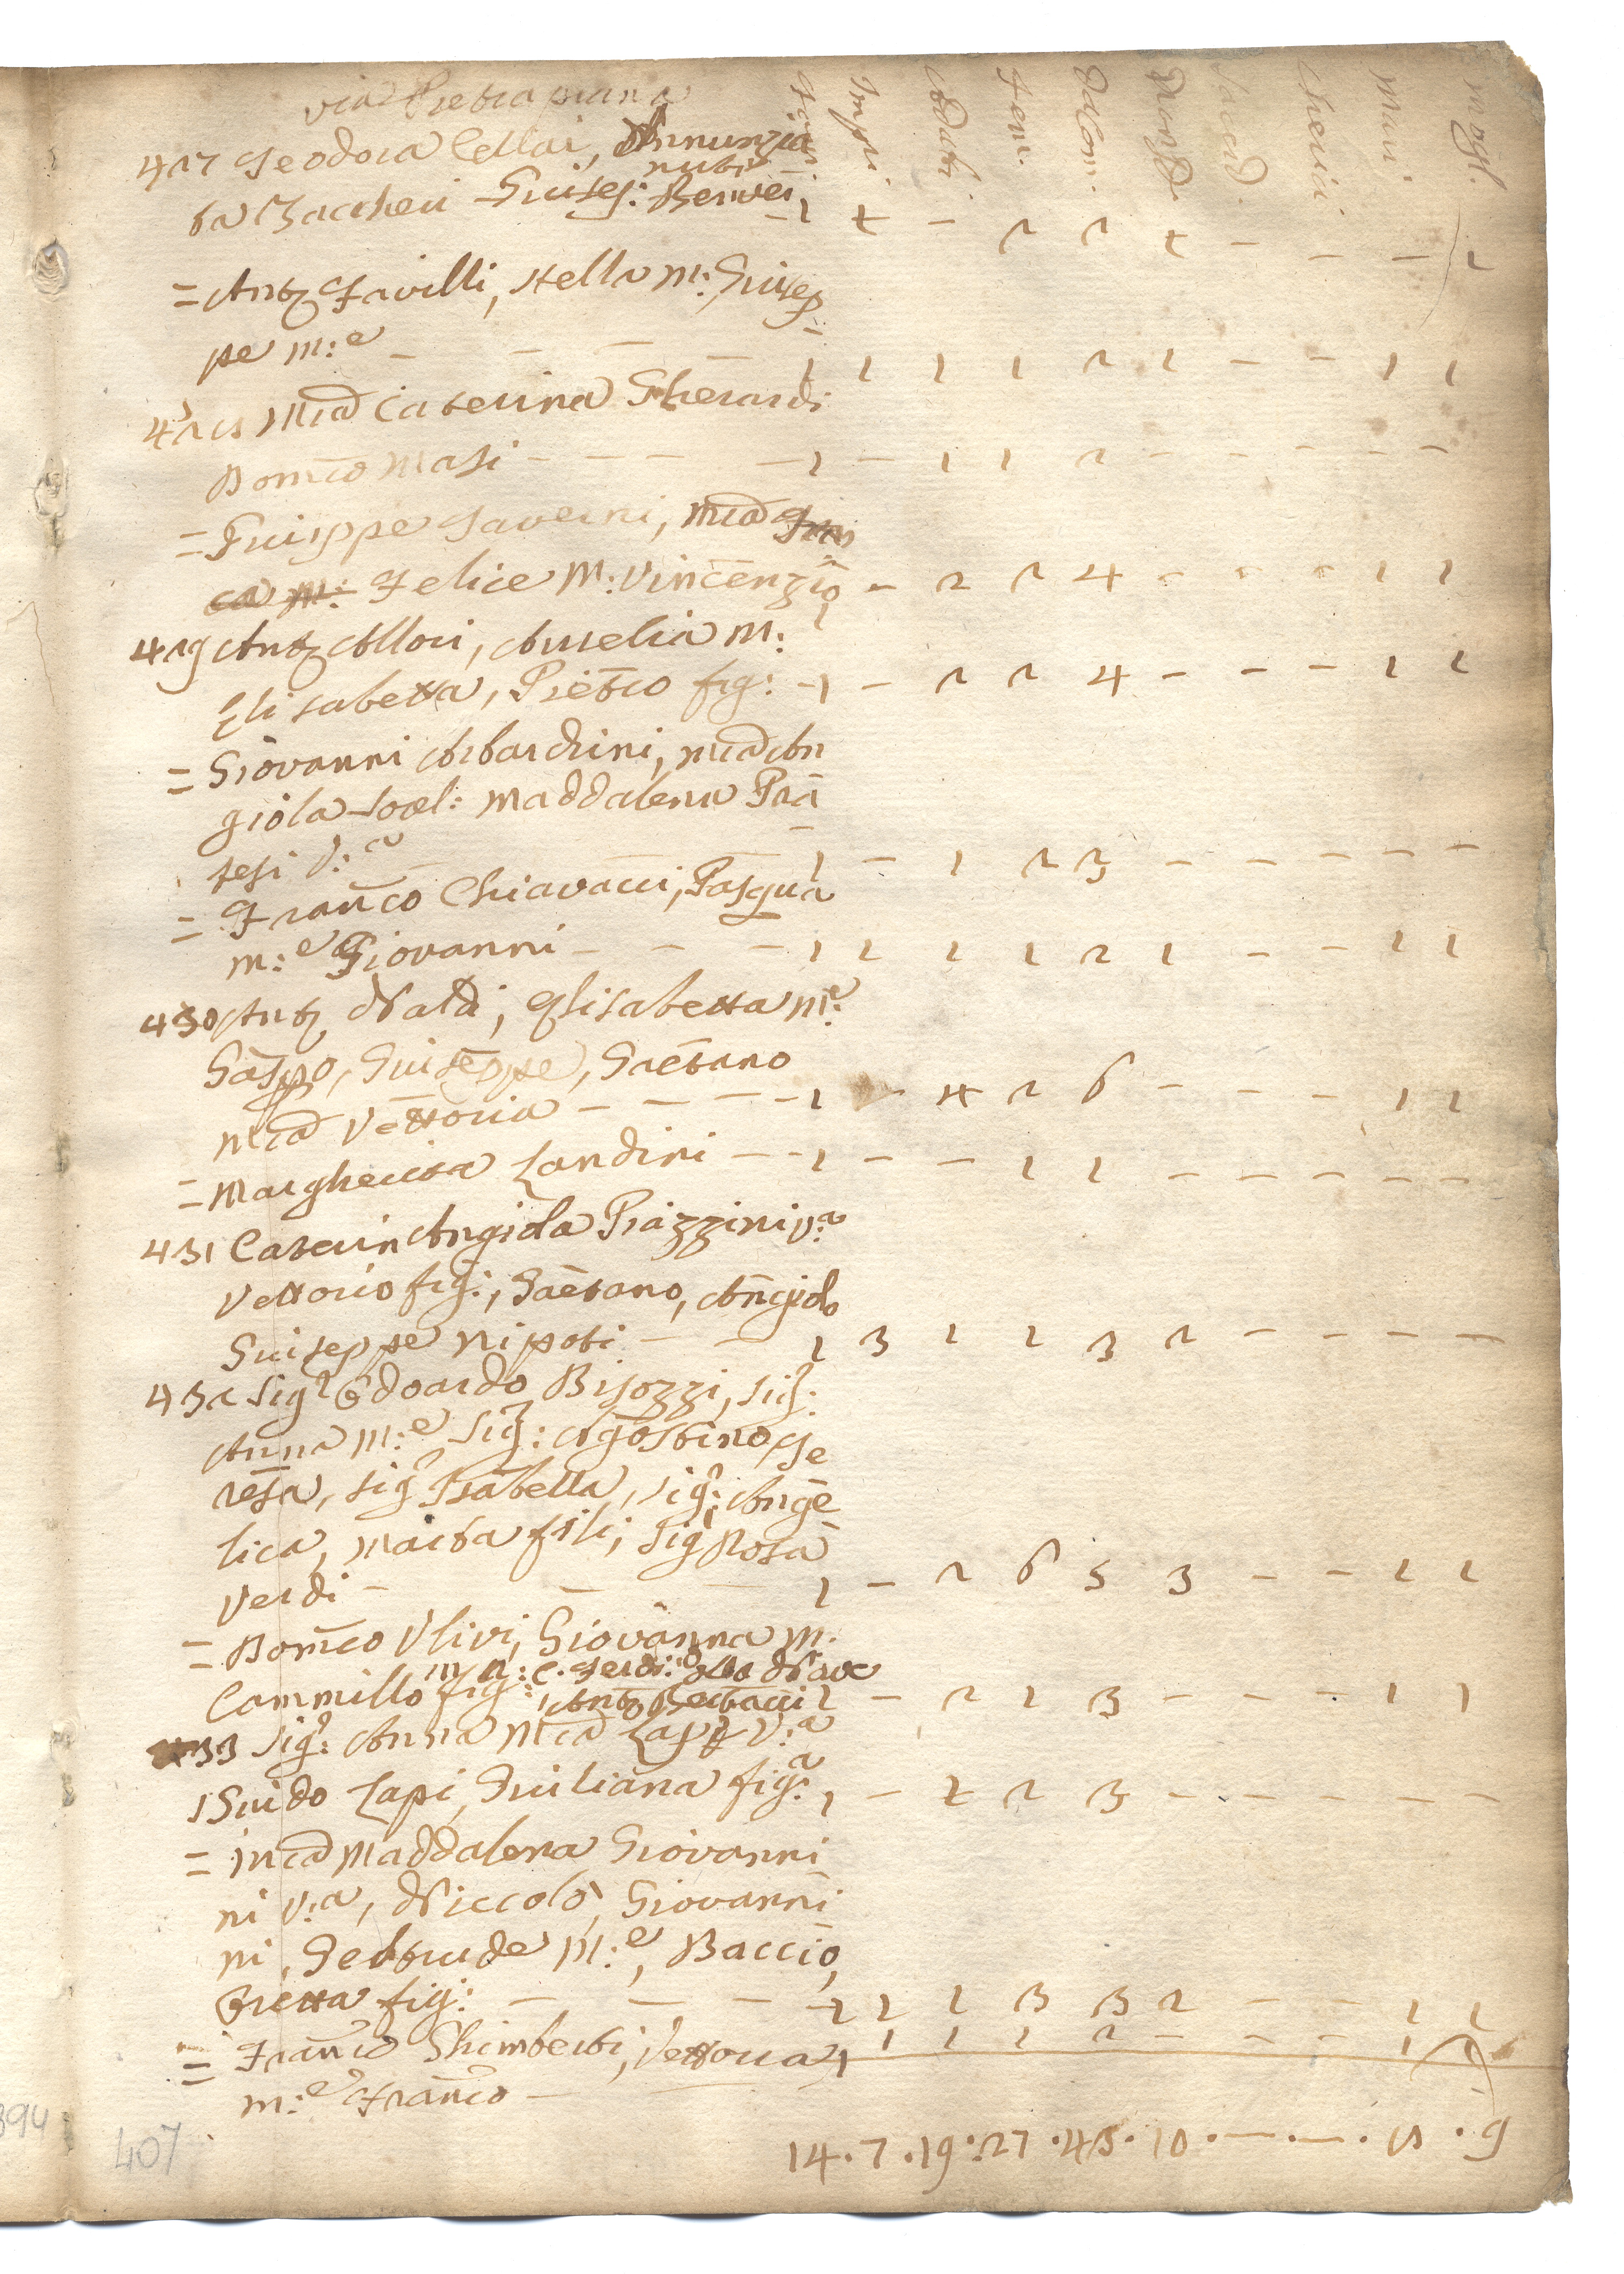 via Pietra piana
Fam: Impu: adulti fem: dalCom: Mendi: Sacerd: Cherici Mari mogl.
427 Teodora Cellai, Annunzia
nubi
ta Zaccheri Giusep: Benven - 1 2 - 2 2 2 - - - 1
= Anto Favilli, Stella m: Giusep
pe m:e - - - - 1 1 1 1 2 1 - - 1 1
428 Mia Caterina Gherardi
Domco Masi - - - - 1 - 1 1 2 - - - - -
= Giuseppe Taverni, mia
ca m: Felice m: Vincenzio 1 - 2 2 4 - - - 1 1
429 Anto Allori, Aurelia m:
Elisabetta, Pietro fig: - 1 - 2 2 4 - - - 1 1
= Giovanni Arbardini, mia An
giola sorel: Maddalena Pra
tesi v:a - 1 - 1 2 3 - - - - -
= Franco Chiavacci, Pasqua
m:e Giovanni - - - 1 1 1 1 2 1 - - 1 1
430 Anto Naldi, Elisabetta m:e
Gaspo, Giuseppe, Gaetano
mia Vettoria - - - - 1 - 4 2 6 - - - 1 1
= Margherita Landini - - 1 - - 1 1 - - - - -
431 Caterin Angiola Piazzini v:a
Vettorio fig:, Gaetano, Angiolo
Giuseppe nipoti - - 1 3 1 1 3 2 - - - -
432 Sigr Edoardo Bisozzi, Sig:
Anna m:e Sig: Agostino, Te
resa, Sig Isabella, Sig: Ange
lica, Marta figli; Sig Rosa
Verdi - - - 1 - 2 6 5 3 - - 1 1
= Domco Ulivi, Giovanna m.
Cammillo fig: 1 - 2 1 3 - - - 1 1
Anto Bertacci
433 Sig: Anna Mia Lapi v:a
Guido Lapi, Giuliana fig:a 1 - 2 2 3 - - - - -
= mia Maddalena Giovanni
ni v:a, Niccolò Giovanni
ni, Geltrude m:e, Baccio,
Bretta fig: - - - 1 2 1 3 3 2 - - 1 1
= Franco Ghimberti, Vettoria 1 1 1 1 2 - - - 1
m:e Franco -
14 . 7 . 19 : 27 . 43 . 10 . - . - . 8 . 9
394
407